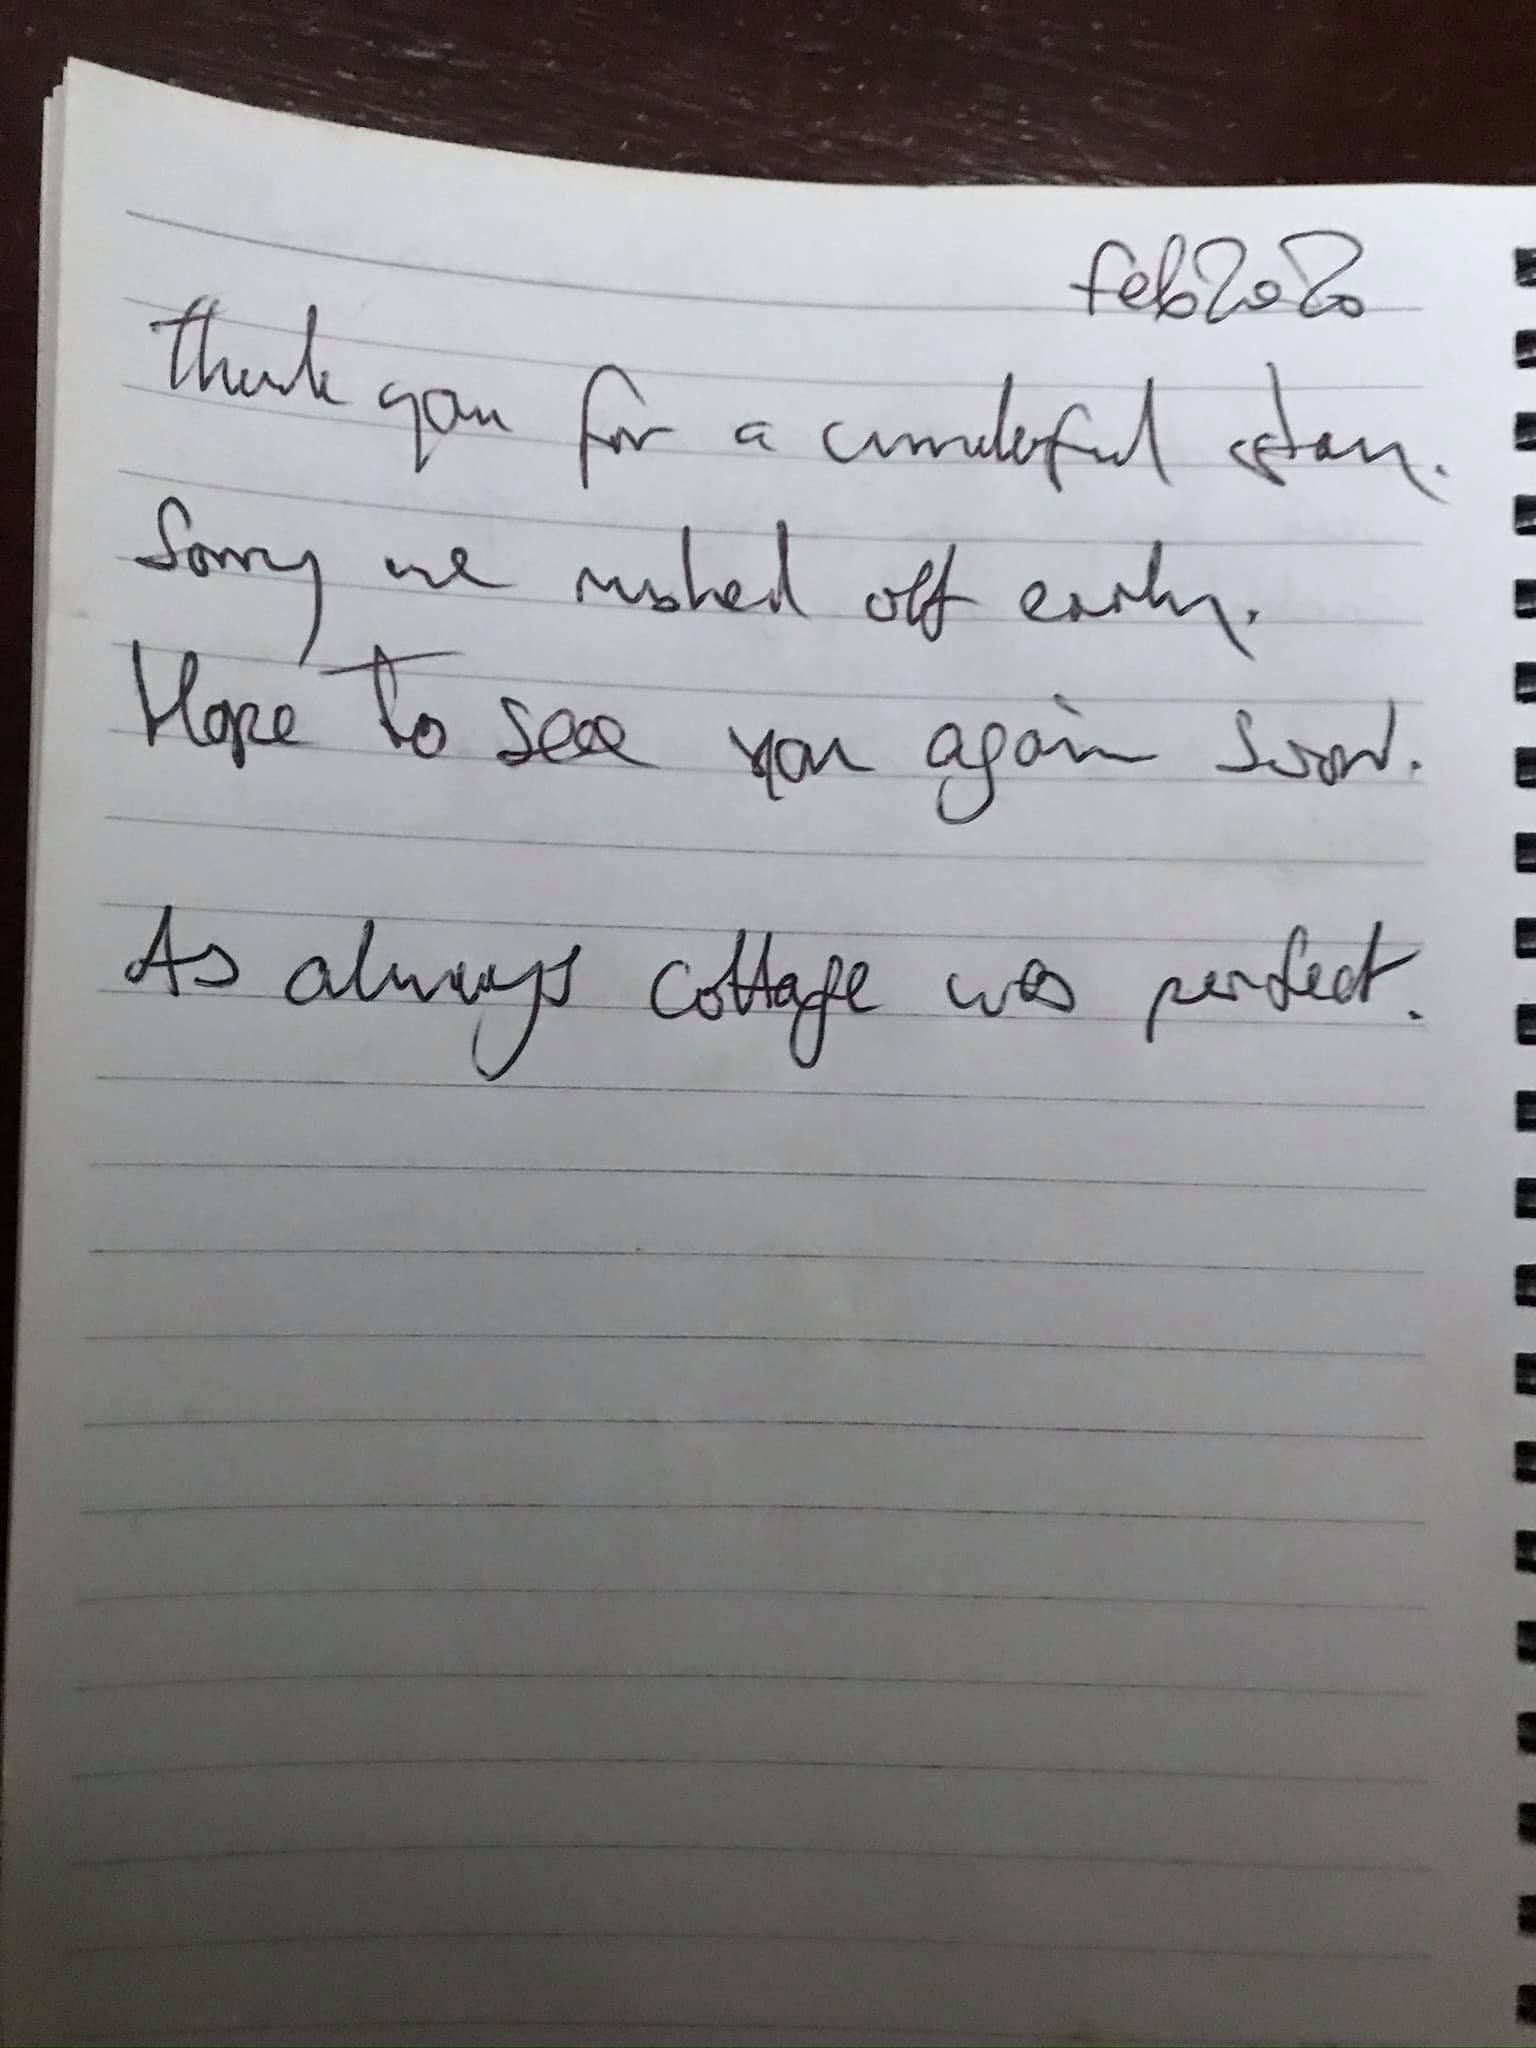 feb 2020
Thank you for a wonderful stay.
Sorry we rushed off early.
Hope to see you again soon.
As always cottage was perfect.